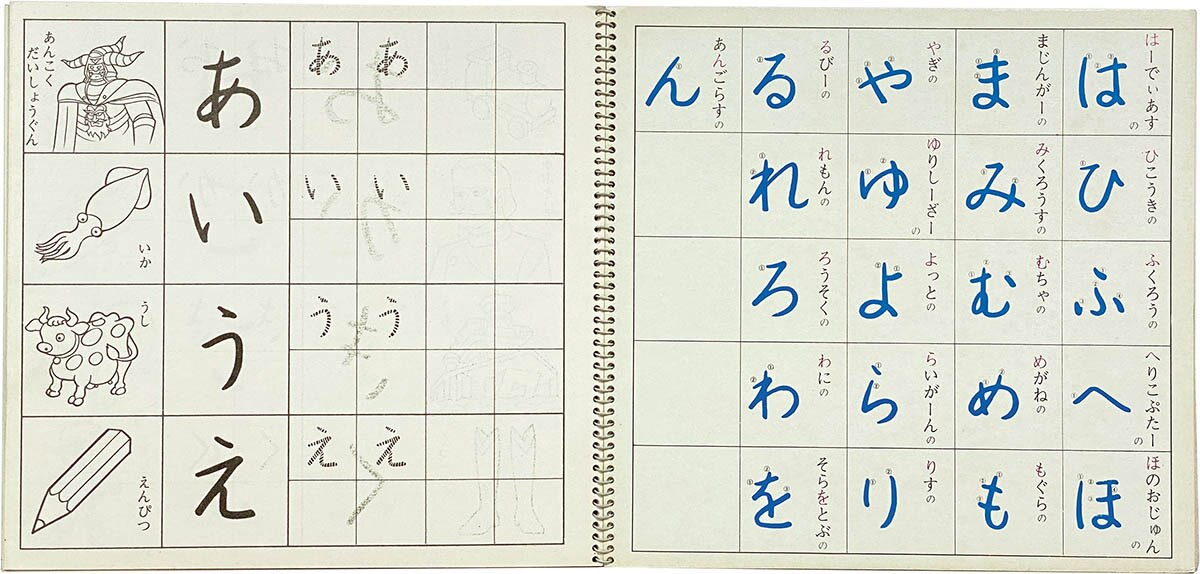 あんこく
だいしょうぐん
あ
あ あ
いか
い
い い
うし
う
う う
えんぴつ
え
え え
はーでぃあすの
は
ひこうきの
ひ
ふくろうの
ふ
へりこぷたーの
へ
ほのおじゅんの
ほ
まじんがーの
ま
みくろうすの
み
むちゃの
む
めがねの
め
もぐらの
も
やぎの
や
ゆりしーざーの
ゆ
よっとの
よ
らいがーんの
ら
りすの
り
るびーの
る
れもんの
れ
ろうそくの
ろ
わにの
わ
そらをとぶの
を
あんごらすの
ん